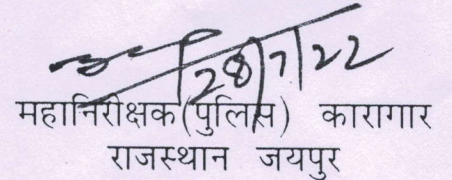 28/7/22
महानिरीक्षक(पुलिस) कारागार
राजस्थान जयपुर